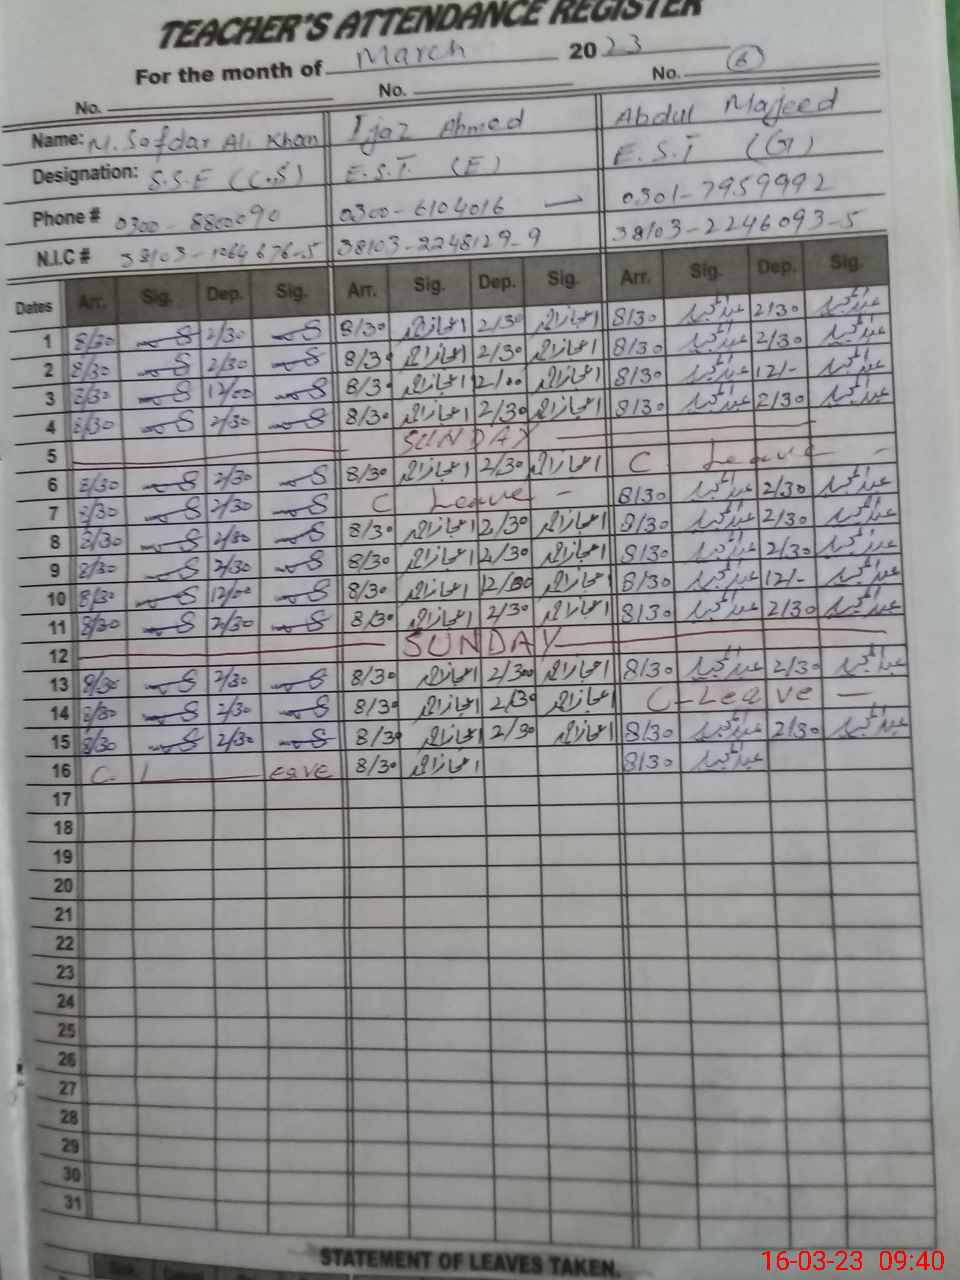 TEACHER'S ATTENDANCE REGISTER
For the month of March 2023
No. No. No. 6
Name: M. Safdar Ali Khan Ijaz Ahmed Abdul Majeed
Designation: S.S.E (C.S) E.S.T. (E) E.S.T (G)
Phone # 0300-8800090 0300-6104016 0301-7959992
N.I.C # 38103-1064676-5 38103-2248129-9 38103-2246093-5
Dates Arr. Sig. Dep. Sig. Arr. Sig. Dep. Sig. Arr. Sig. Dep. Sig.
1 8/30 2/30 8/30 اعجاز احمد 2/30 اعجاز احمد 8/30 عبدالمجید 2/30 عبدالمجید
2 8/30 2/30 8/30 اعجاز احمد 2/30 اعجاز احمد 8/30 عبدالمجید 2/30 عبدالمجید
3 8/30 12/00 8/30 اعجاز احمد 12/00 اعجاز احمد 8/30 عبدالمجید 12/- عبدالمجید
4 8/30 2/30 8/30 اعجاز احمد 2/30 اعجاز احمد 8/30 عبدالمجید 2/30 عبدالمجید
5 SUNDAY
6 8/30 2/30 8/30 اعجاز احمد 2/30 اعجاز احمد C Leave -
7 8/30 2/30 C Leave - 8/30 عبدالمجید 2/30 عبدالمجید
8 8/30 2/30 8/30 اعجاز احمد 2/30 اعجاز احمد 8/30 عبدالمجید 2/30 عبدالمجید
9 8/30 2/30 8/30 اعجاز احمد 2/30 اعجاز احمد 8/30 عبدالمجید 2/30 عبدالمجید
10 8/30 12/00 8/30 اعجاز احمد 12/00 اعجاز احمد 8/30 عبدالمجید 12/- عبدالمجید
11 8/30 2/30 8/30 اعجاز احمد 2/30 اعجاز احمد 8/30 عبدالمجید 2/30 عبدالمجید
12 SUNDAY
13 8/30 2/30 8/30 اعجاز احمد 2/300 اعجاز احمد 8/30 عبدالمجید 2/30 عبدالمجید
14 8/30 2/30 8/30 اعجاز احمد 2/30 اعجاز احمد C-Leave -
15 8/30 2/30 8/30 اعجاز احمد 2/30 اعجاز احمد 8/30 عبدالمجید 2/30 عبدالمجید
16 C. Leave 8/30 اعجاز احمد 8/30 عبدالمجید
17
18
19
20
21
22
23
24
25
26
27
28
29
30
31
STATEMENT OF LEAVES TAKEN.
16-03-23 09:40